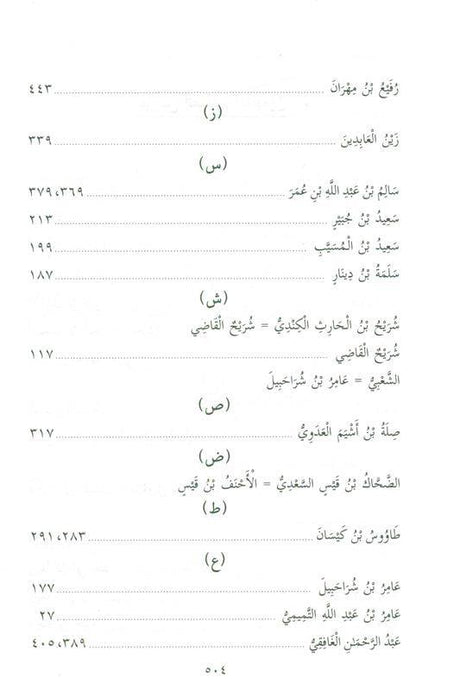 رُفَيْعُ بْنُ مِهْرَانَ ........ ٤٤٣
(ز)
زَيْنُ الْعَابِدِينَ ........ ٣٣٩
(س)
سَالِمُ بْنُ عَبْدِ اللَّهِ بْنِ عُمَرَ ........ ٣٦٩، ٣٧٩
سَعِيدُ بْنُ جُبَيْرٍ ........ ٢١٣
سَعِيدُ بْنُ الْمُسَيَّبِ ........ ١٩٩
سَلَمَةُ بْنُ دِينَارٍ ........ ١٨٧
(ش)
شُرَيْحُ بْنُ الْحَارِثِ الْكِنْدِيُّ = شُرَيْحٌ الْقَاضِي
شُرَيْحٌ الْقَاضِي ........ ١١٧
الشَّعْبِيُّ = عَامِرُ بْنُ شُرَاحَبِيلَ
(ص)
صِلَةُ بْنُ أَشْيَمَ الْعَدَوِيُّ ........ ٣١٧
(ض)
الضَّحَّاكُ بْنُ قَيْسٍ السَّعْدِيُّ = الْأَحْنَفُ بْنُ قَيْسٍ
(ط)
طَاوُوسُ بْنُ كَيْسَانَ ........ ٢٨٣، ٢٩١
(ع)
عَامِرُ بْنُ شُرَاحَبِيلَ ........ ١٧٧
عَامِرُ بْنُ عَبْدِ اللَّهِ التَّمِيمِيُّ ........ ٢٧
عَبْدُ الرَّحْمَٰنِ الْغَافِقِيُّ ........ ٣٨٩، ٤٠٥
٥٠٤